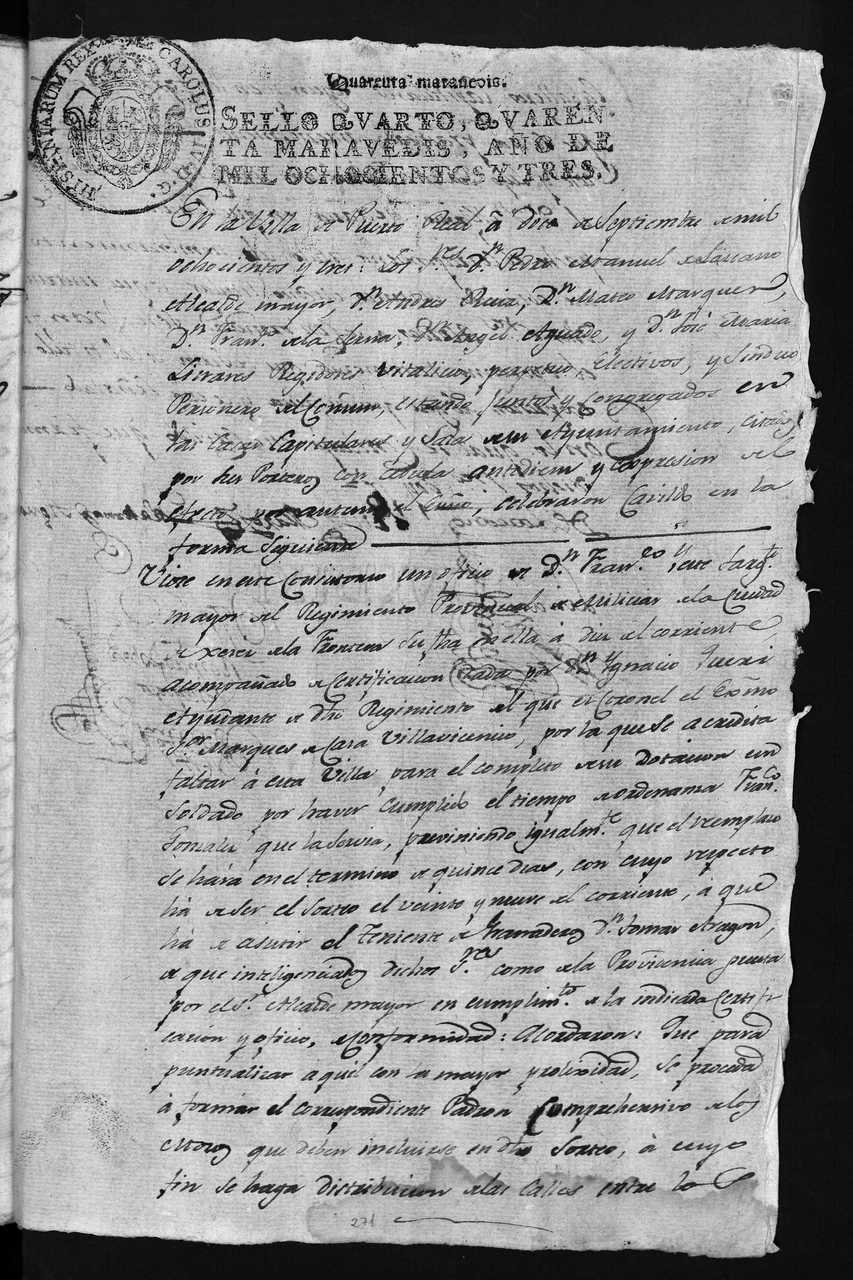 HISPANIARUM REX CAROLUS IV. D. G.
Quarenta maravedis.
SELLO QVARTO, QVAREN-
TA MARAVEDIS, AÑO DE
MIL OCHOCIENTOS Y TRES.
En la Villa de Puerto Real à doce de Septiembre de mil
ochocientos y tres: los S.res D.n Pedro Manuel de
Alcalde mayor, D.n Andres Ruiz, D.n Mateo Marquez,
D.n Fran.co de la Serna, D.n Angel Aguado, y D.n José Maria
Linares Regidores Vitalicio, perpetuo Electivos, y Sindico
Personero del Comun, estando juntos y Congregados en
las Casas Capitulares y Salas de su Ayuntamiento, citados
por sus Porteros con cedula antediem y expresion del
efecto, por antemi el celebraron Cavildo en la
forma Siguiente
Viose en este Consistorio un oficio de D.n Fran.co Sarg.to
mayor del Regimiento Provincial de Milicias de la Ciudad
de Xerez de la Frontera Su fha en ella à diez del corriente,
acompañado de Certificacion dada por D.n Ygnacio
Ayudante de dho Regimiento del que es Coronel el Exmo
S.or Marques de Casa Villavicencio, por la que se acredita
faltar à esta Villa para el completo de su Dotacion un
Soldado por haver cumplido el tiempo de ordenanza Fran.co
Gonzalez que la servia, previniendo igualm.te que el reemplazo
se hará en el termino de quince dias, con cuyo respecto
há de ser el Sorteo el veinte y nueve del corriente, à que
há de asistir el Teniente de Granaderos D.n Tomas Aragon,
de que inteligenciados dichos S.res como de la Providencia puesta
por el S.r Alcalde mayor en cumplim.to de la indicada Certifi
cacion y oficio, de conformidad: Acordaron: Que para
puntualizar aquel con la mayor prolixidad, se proceda
à formar el correspondiente Padron Comprehensivo de los
mozos que deben incluirse en dho Sorteo, à cuyo
fin se haga distribucion de las Calles entre los
271